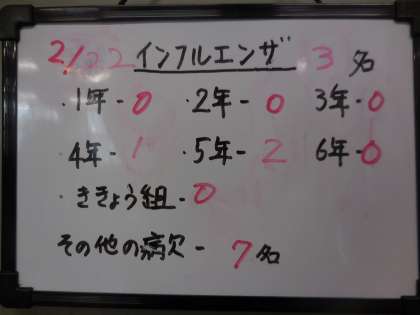 2/22 インフルエンザ 3名
・1年-0 ・2年-0 3年-0
・4年-1 ・5年-2 6年-0
・ききょう組-0
その他の病欠- 7名